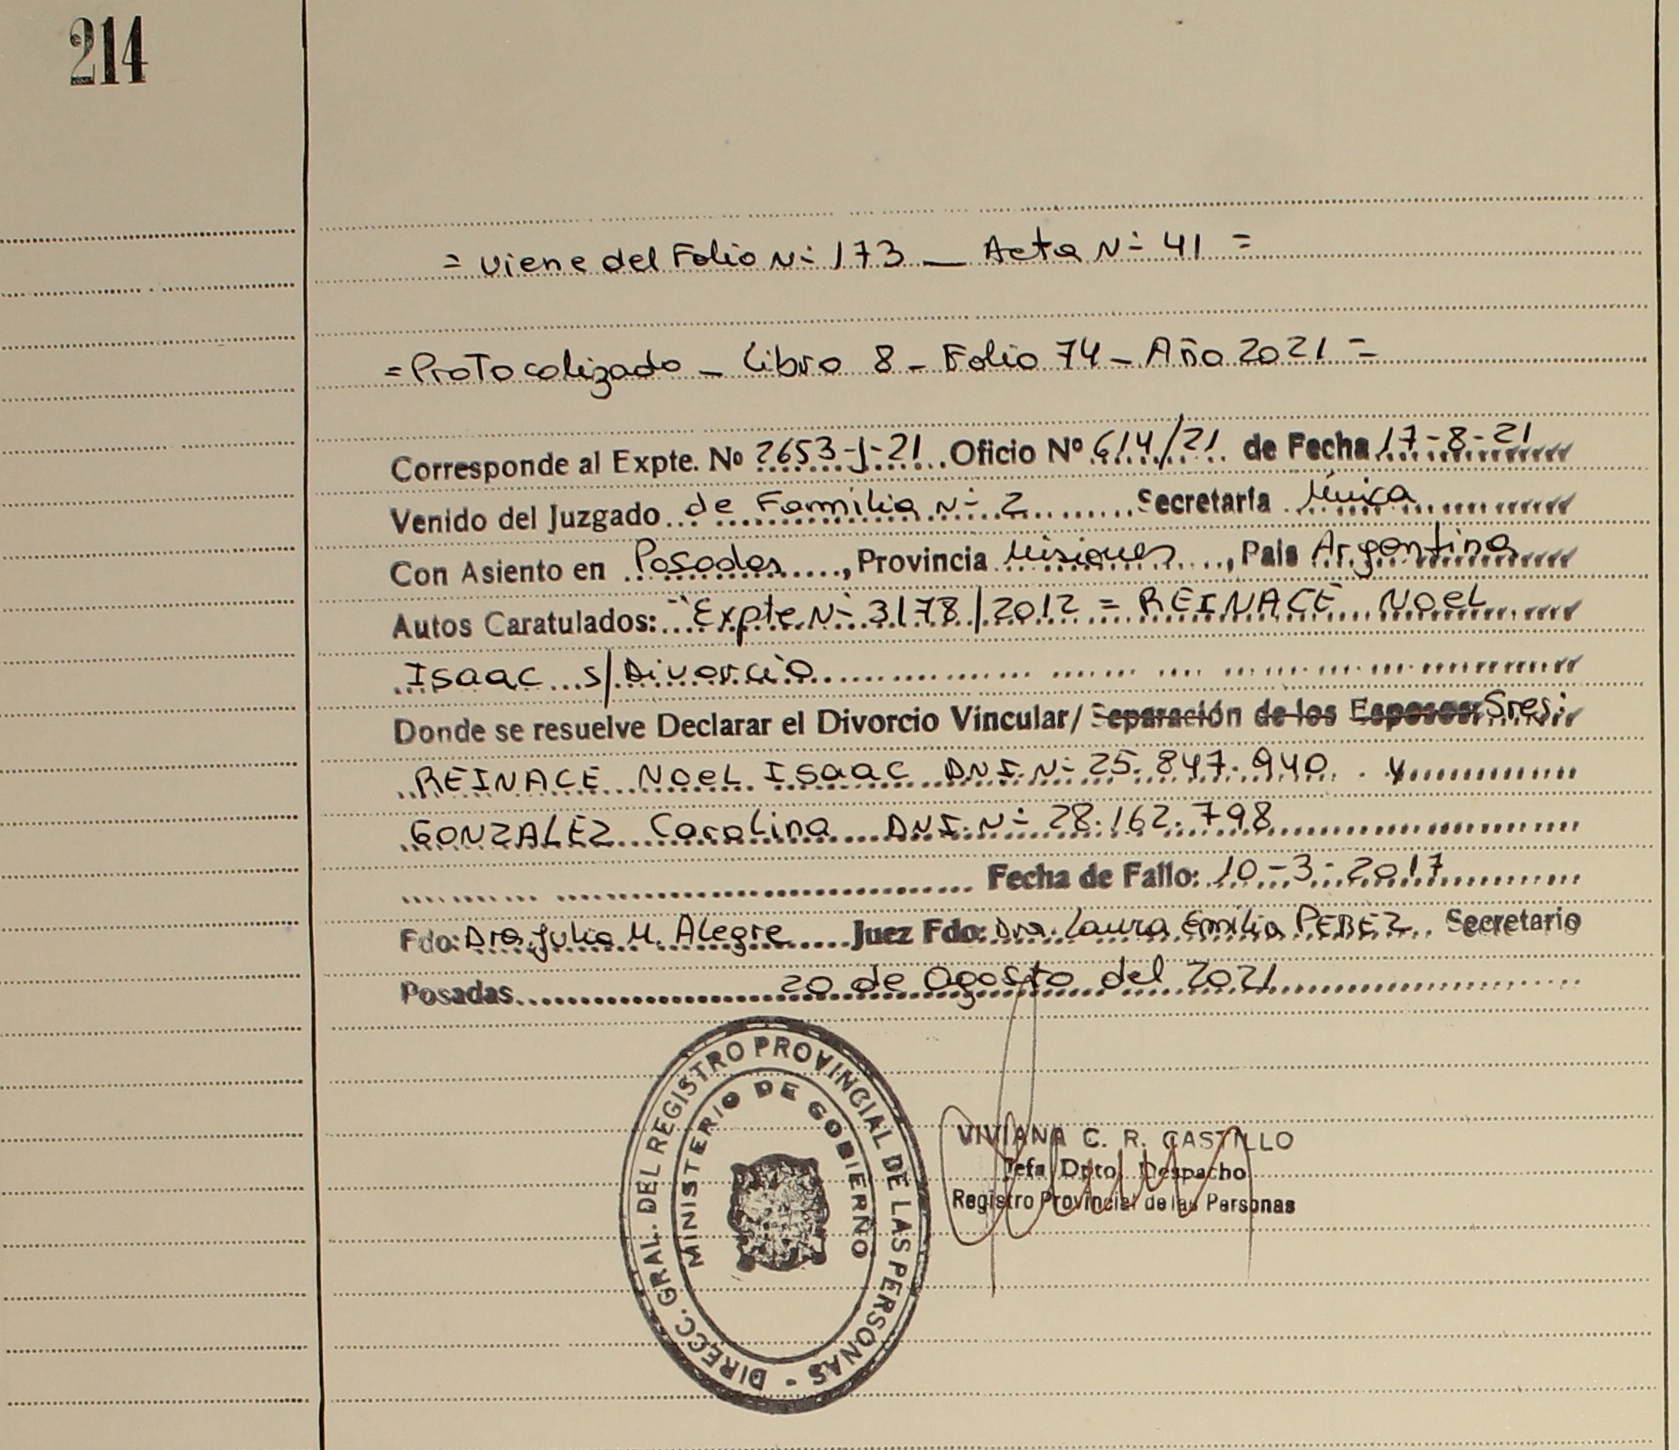 214
= Viene del Folio Nº 173 _ Acta Nº 41 =
= Protocolizado _ Libro 8 - Folio 74 - Año 2021 =
Corresponde al Expte. Nº 2653-J-21 Oficio Nº 614/21 de Fecha 17-8-21
Venido del Juzgado de Familia Nº 2 Secretaría Única
Con Asiento en Posadas, Provincia Misiones, País Argentina
Autos Caratulados: "Expte Nº 3178/2012 = REINACE Noel
Isaac s/Divorcio
Donde se resuelve Declarar el Divorcio Vincular/ Separación de los Esposos: Sres:
REINACE Noel Isaac DNI. Nº 25.847.940. y
GONZALEZ Carolina DNI. Nº 28.162.798
Fecha de Fallo: 10-3-2017
Fdo: Dra. Julia M. Alegre Juez Fdo: Dra. Laura Emilia PEREZ Secretario
Posadas 20 de Agosto del 2021
DIRECC. GRAL. DEL REGISTRO PROVINCIAL DE LAS PERSONAS -
MINISTERIO DE GOBIERNO
VIVIANA C. R. CASTILLO
Jefa Dpto. Despacho
Registro Provincial de las Personas